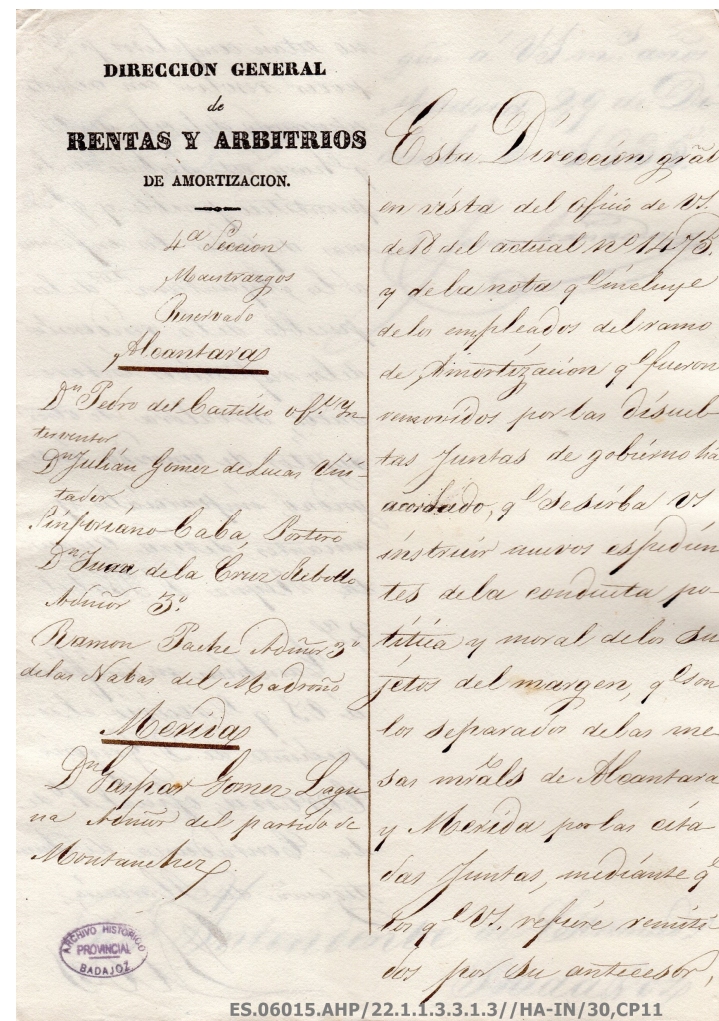 DIRECCION GENERAL
de
RENTAS Y ARBITRIOS
DE AMORTIZACION.
4ª Seccion
Maestrazgos
Reservado
Alcantara
Dn Pedro del Castillo ofl. Yn-
terventor
Dn Julián Gomez de Lucas Vi si-
tador
Sinforiano Caba, Portero
Dn Juan dela Cruz Rebollo
Admor 3º
Ramon Pache Admor 3º
delas Nabas del Madroño
Merida
Dn Gaspar Gomez Lagu-
na Admor del partido de
Montanchez
Esta Dirección gral
en vista del oficio de VS.
de 18 del actual nº 1475.
y dela nota qe incluye
delos empleados del ramo
de Amortización qe fueron
removidos por las disuel-
tas Juntas de gobierno há
acordado, qe se sirba VS
instruir nuevos espedien-
tes dela conducta po-
lítica y moral delos su
jetos del margen, qe son
los separados delas me
sas mrals de Alcantara
y Merida por las cita
das Juntas, mediánte qe
los qe VS. refiere remiti-
dos por su antecesor,
ARCHIVO HISTORICO
PROVINCIAL
BADAJOZ
ES.06015.AHP/22.1.1.3.3.1.3//HA-IN/30,CP11